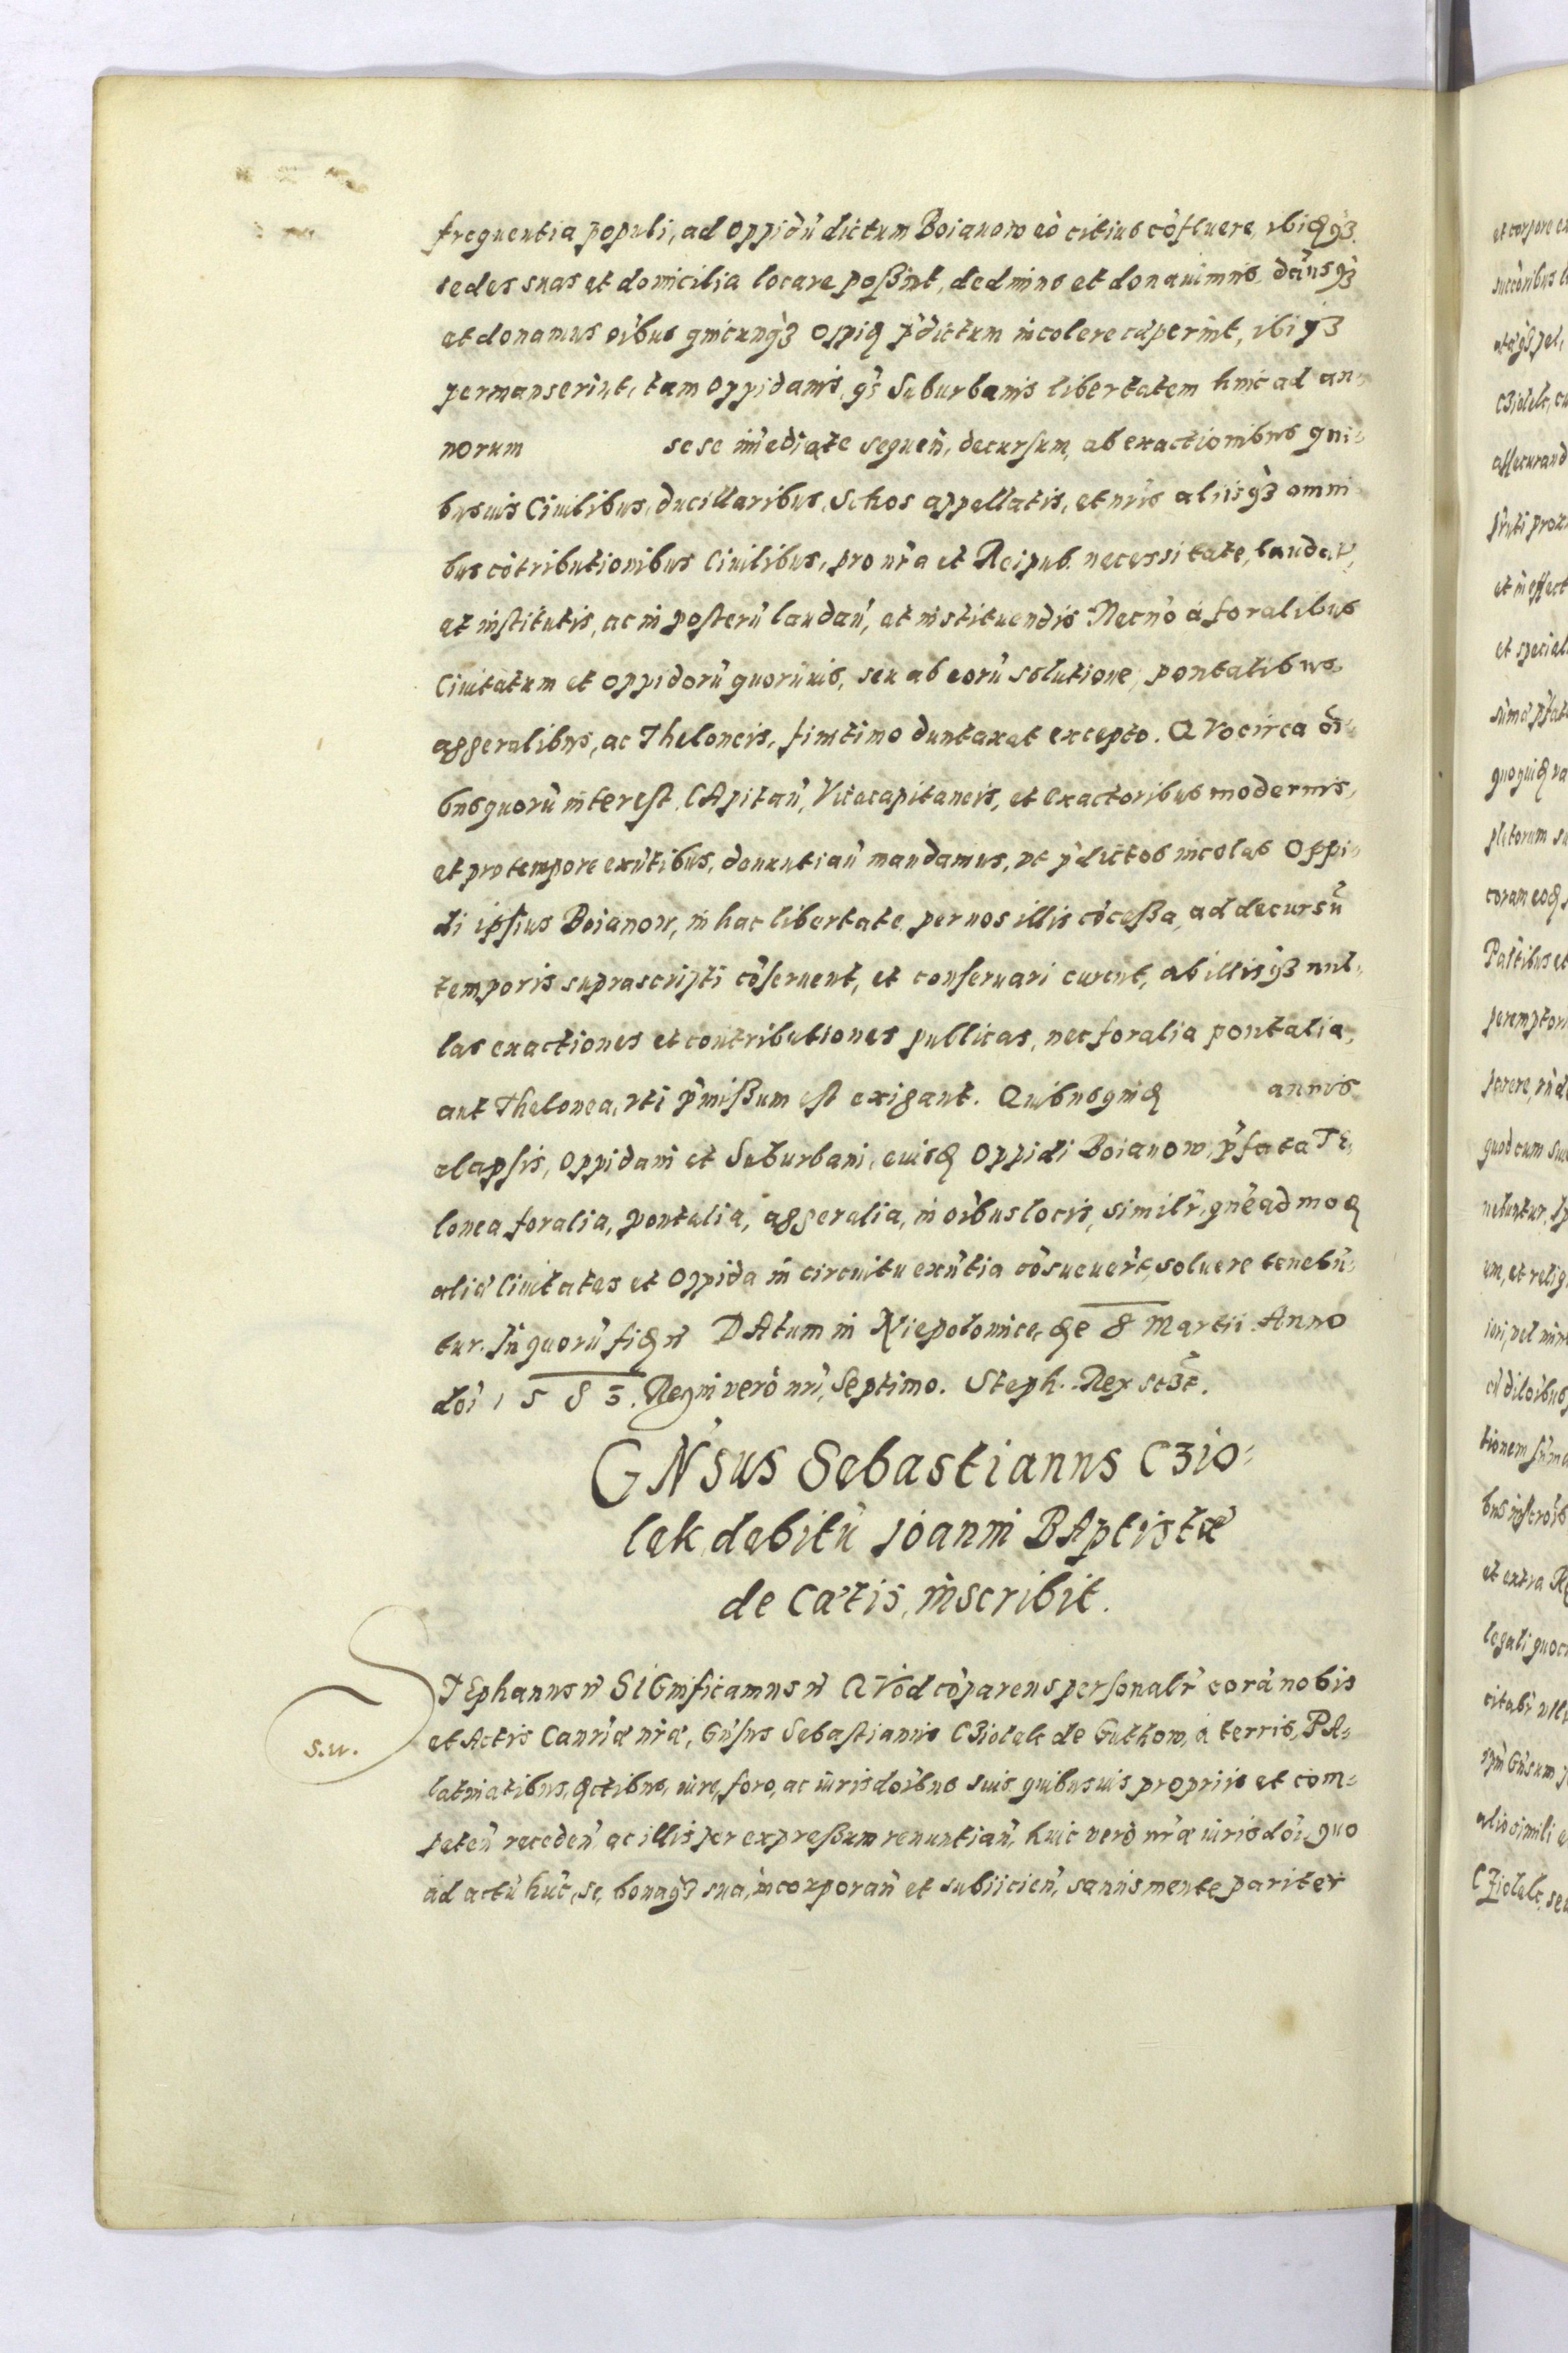 frequentia populi, ad oppidũ dictum Boianow eò citius cõfluere, ibidqꝫ
sedes suas et domicilia locare poßint, dedimus et donauimus, dãusqꝫ
et donamus oĩbus quicunqꝫ oppid p̃dictum incolere cæperint, ibiqꝫ
permanserint, tam oppidanis, q̃s Suburbanis libertatem hinc ad an
norum sese im̃ediate sequeñ, decursum, ab exactionibus qui-
busuis Ciuilibus, ducillaribus, Schos appellatis, et nr̃is aliisqꝫ omni
bus cõtributionibus Ciuilibus, pro nr̃a et Reipub. necessitate, laudat,
et institutis, ac in posterũ laudañ, et instituendis Necnõ à foralibus
Ciuitatum et oppidorũ quorũuis, seu ab eorũ solutione, pontalibus
aggeralibus, ac Theloneis, finitimo duntaxat excepto. QVocirca oĩ-
bus quorũ interest, CApitañ, Vicecapitaneis, et exactoribus modernis,
et pro tempore exñtibus, denuntiañ mandamus, vt p̃dictos incolas Oppi-
di ipsius Boianow, in hac libertate per nos illis cõceßa, ad decursũ
temporis suprascripti cõseruent, et conseruari curent, ab illisqꝫ nul-
las exactiones et contributiones publicas, nec foralia pontalia,
aut Thelonea, vti p̃mißum est exigant. Quibusquid annis
elapsis, oppidani et Suburbani, euisd Oppidi Boianow, p̃fata Te-
lonea foralia, pontalia, aggeralia, in oĩbus locis, similr̃, qñeadmod
aliæ Ciuitates et Oppida in circuitu exñtia cõsueuer̃t, soluere tenebũ-
tur. In quorũ fid ñ DAtum in Niepolomice, de 8 Martii Anno
doĩ 1583. Regni verò nr̃i, Septimo. Steph. Rex sc3t.
GÑsus Sebastianus Cꝫio-
lek debitũ Joanni BAptistæ
de Cætis, inscribit.
STEphanus ñ SIGnificamus ñ QVod cõparens personalr̃ corã nobis
s.w.
et Actis Canr̃iæ nr̃æ, Gñsus Sebastianus Cꝫiolek de Guthow, à terris, PA-
latinatibus, dctibus, iure, foro, ac iurisdoĩbus suis quibusuis propriis et com-
peteñ recedeñ ac illis per expreßum renuntiañ, huic verò nr̃æ iurisdoĩ, quo
ad actũ hũc, se, bonaqꝫ sua, incorporañ et subiicieñ, sanus mente pariter